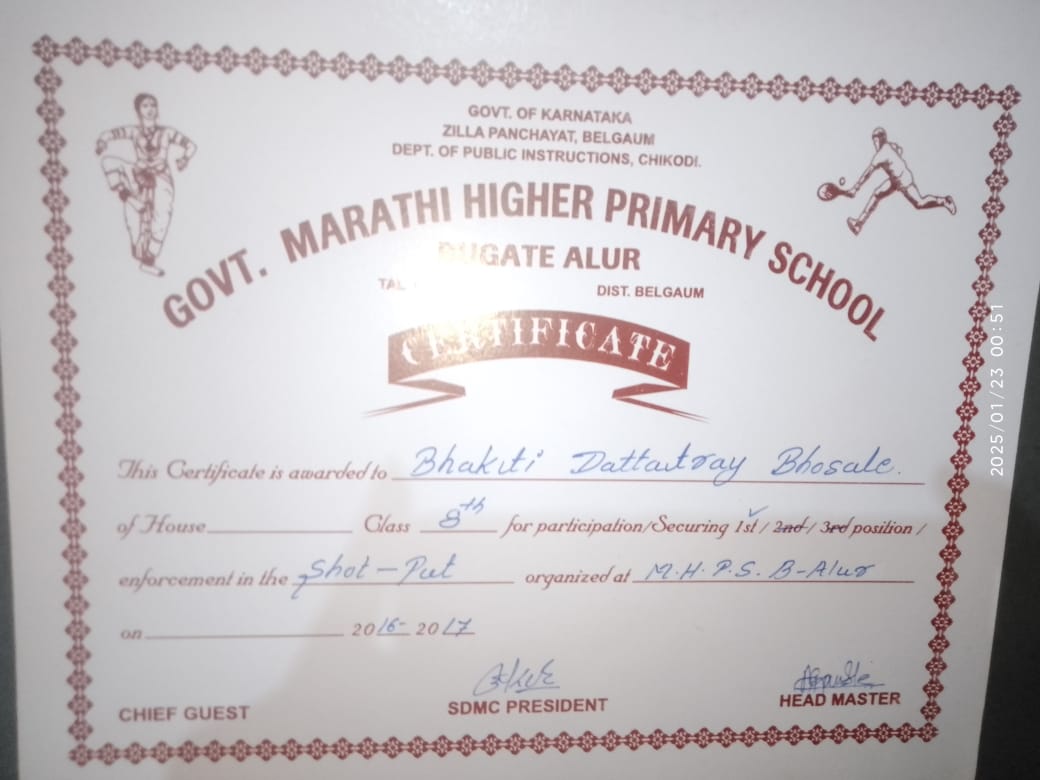 GOVT. OF KARNATAKA
ZILLA PANCHAYAT, BELGAUM
DEPT. OF PUBLIC INSTRUCTIONS, CHIKODI.
GOVT. MARATHI HIGHER PRIMARY SCHOOL
ALUR
DIST. BELGAUM
CERTIFICATE
This Certificate is awarded to Bhakiti Dattatray Bhosale.
of House Class 8th for participation/Securing 1st / 2nd / 3rd position /
enforcement in the Shot-Put organized at M.H.P.S. B-Alur
on 2016-2017
CHIEF GUEST
SDMC PRESIDENT
HEAD MASTER
2025/01/23 00:51